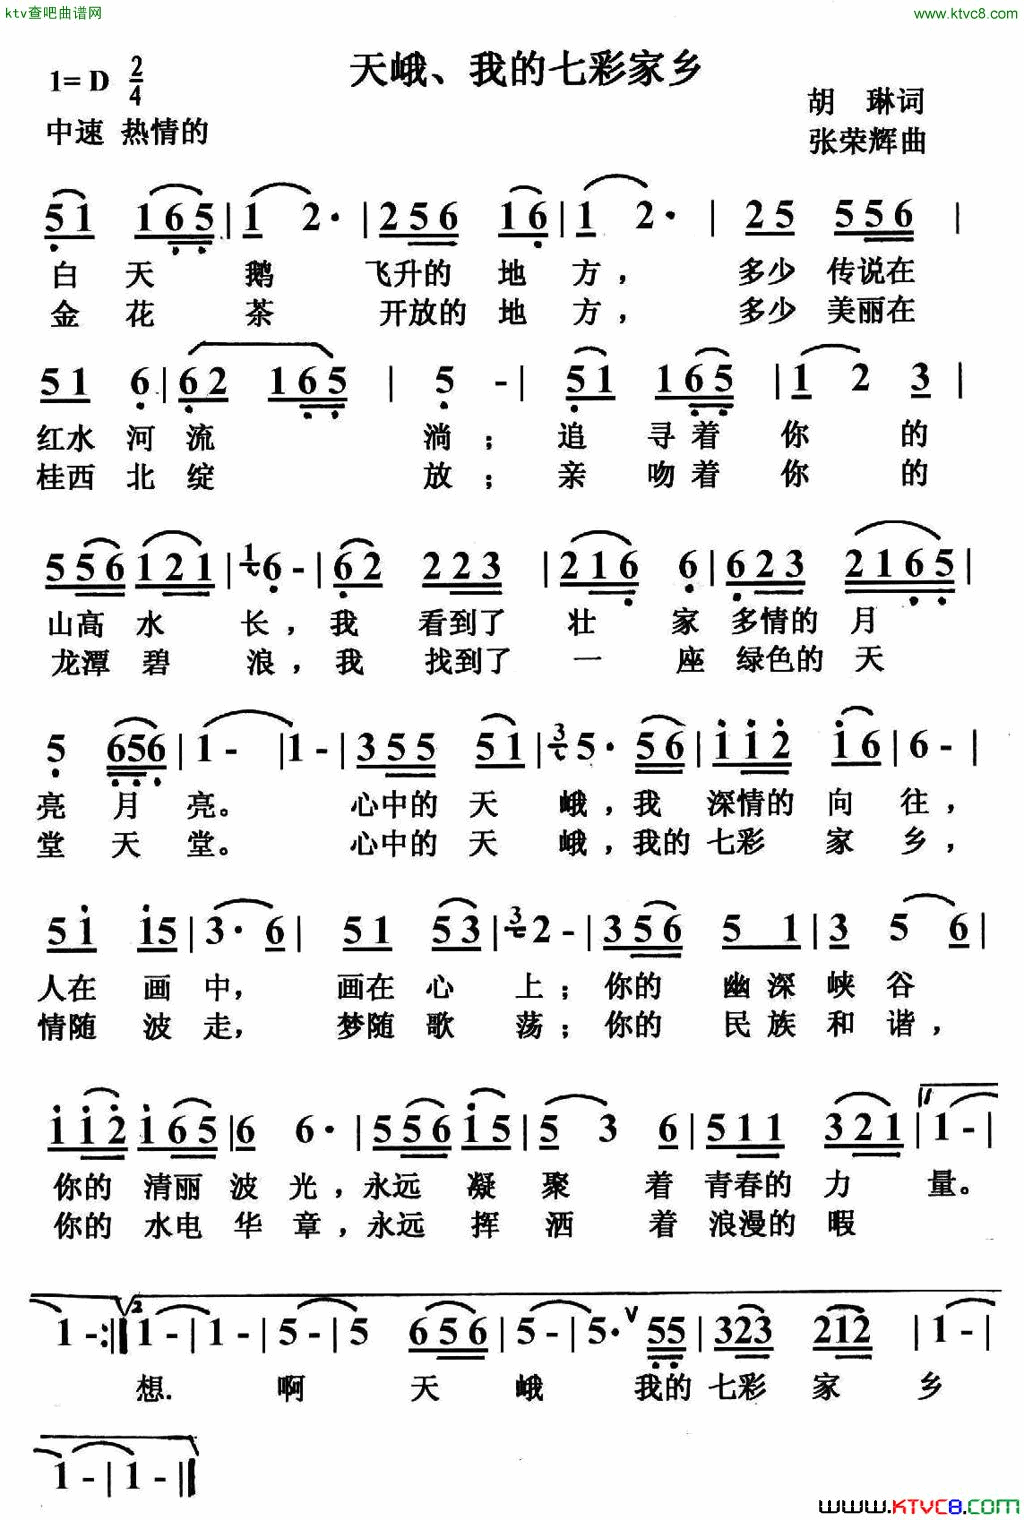 ktv查吧曲谱网
www.ktvc8.com
天峨、我的七彩家乡
1=D 2/4
胡 琳词
中速 热情的
张荣辉曲
51 165 | 1 2· | 256 16 | 1 2· | 25 556 |
白 天 鹅 飞升的 地 方， 多少 传说在
金 花 茶 开放的 地 方， 多少 美丽在
51 6 | 62 165 | 5 - | 51 165 | 1 2 3 |
红水 河 流 淌； 追 寻着 你 的
桂西 北 绽 放； 亲 吻着 你 的
556 121 | 1 6 - | 62 223 | 216 6 | 623 2165 |
山高 水 长，我 看到了 壮 家 多情的 月
龙潭 碧 浪，我 找到了 一 座 绿色的 天
5 656 | 1 - | 1 - | 355 51 | 3 5· 56 | 112 16 | 6 - |
亮 月 亮。 心中的 天 峨，我 深情的 向 往，
堂 天 堂。 心中的 天 峨，我的 七彩 家 乡，
51 15 | 3· 6 | 51 53 | 3 2 - | 356 5 1 | 3 5 6 |
人在 画 中， 画在 心 上；你的 幽 深 峡 谷
情随 波 走， 梦随 歌 荡；你的 民 族 和 谐，
112 165 | 6 6· | 556 15 | 5 3 6 | 511 321 | 1 - |
你的 清丽 波 光，永远 凝 聚 着 青春的 力 量。
你的 水电 华 章，永远 挥 洒 着 浪漫的 暇
1 - :‖ 2 1 - | 1 - | 5 - | 5 656 | 5 - | 5· ∨ 55 | 323 212 | 1 - |
想. 啊 天 峨 我的 七彩 家 乡
1 - | 1 - ‖
www.KTVC8.COM